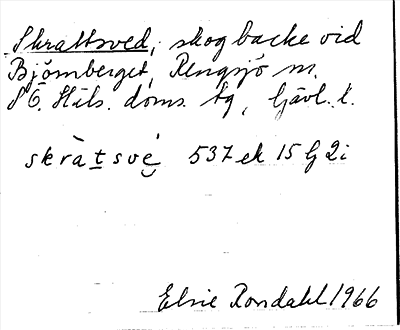 Skrattsved, skogbacke vid
Björnberget, Rengsjö sn.
S Ö. Häls. doms. tg, Gävl. l.
skràtsvé 537 ek 15 G 2i
Elsie Rondahl 1966